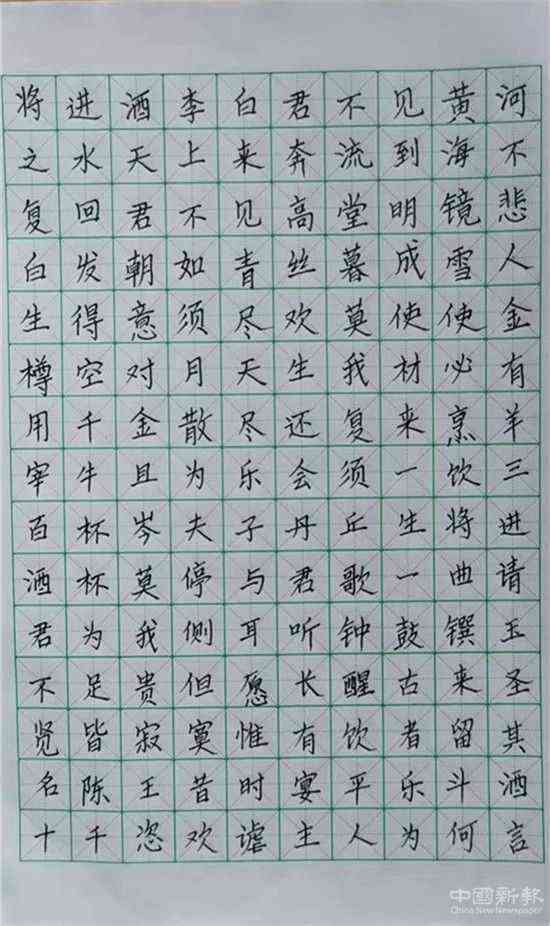 将进酒李白君不见黄河
之水天上来奔流到海不
复回君不见高堂明镜悲
白发朝如青丝暮成雪人
生得意须尽欢莫使使金
樽空对月天生我材必有
用千金散尽还复来烹羊
宰牛且为乐会须一饮三
百杯岑夫子丹丘生将进
酒杯莫停与君歌一曲请
君为我侧耳听钟鼓馔玉
不足贵但愿长醒古来圣
贤皆寂寞惟有饮者留其
名陈王昔时宴平乐斗酒
十千恣欢谑主人为何言
中國新報
China New Newspaper